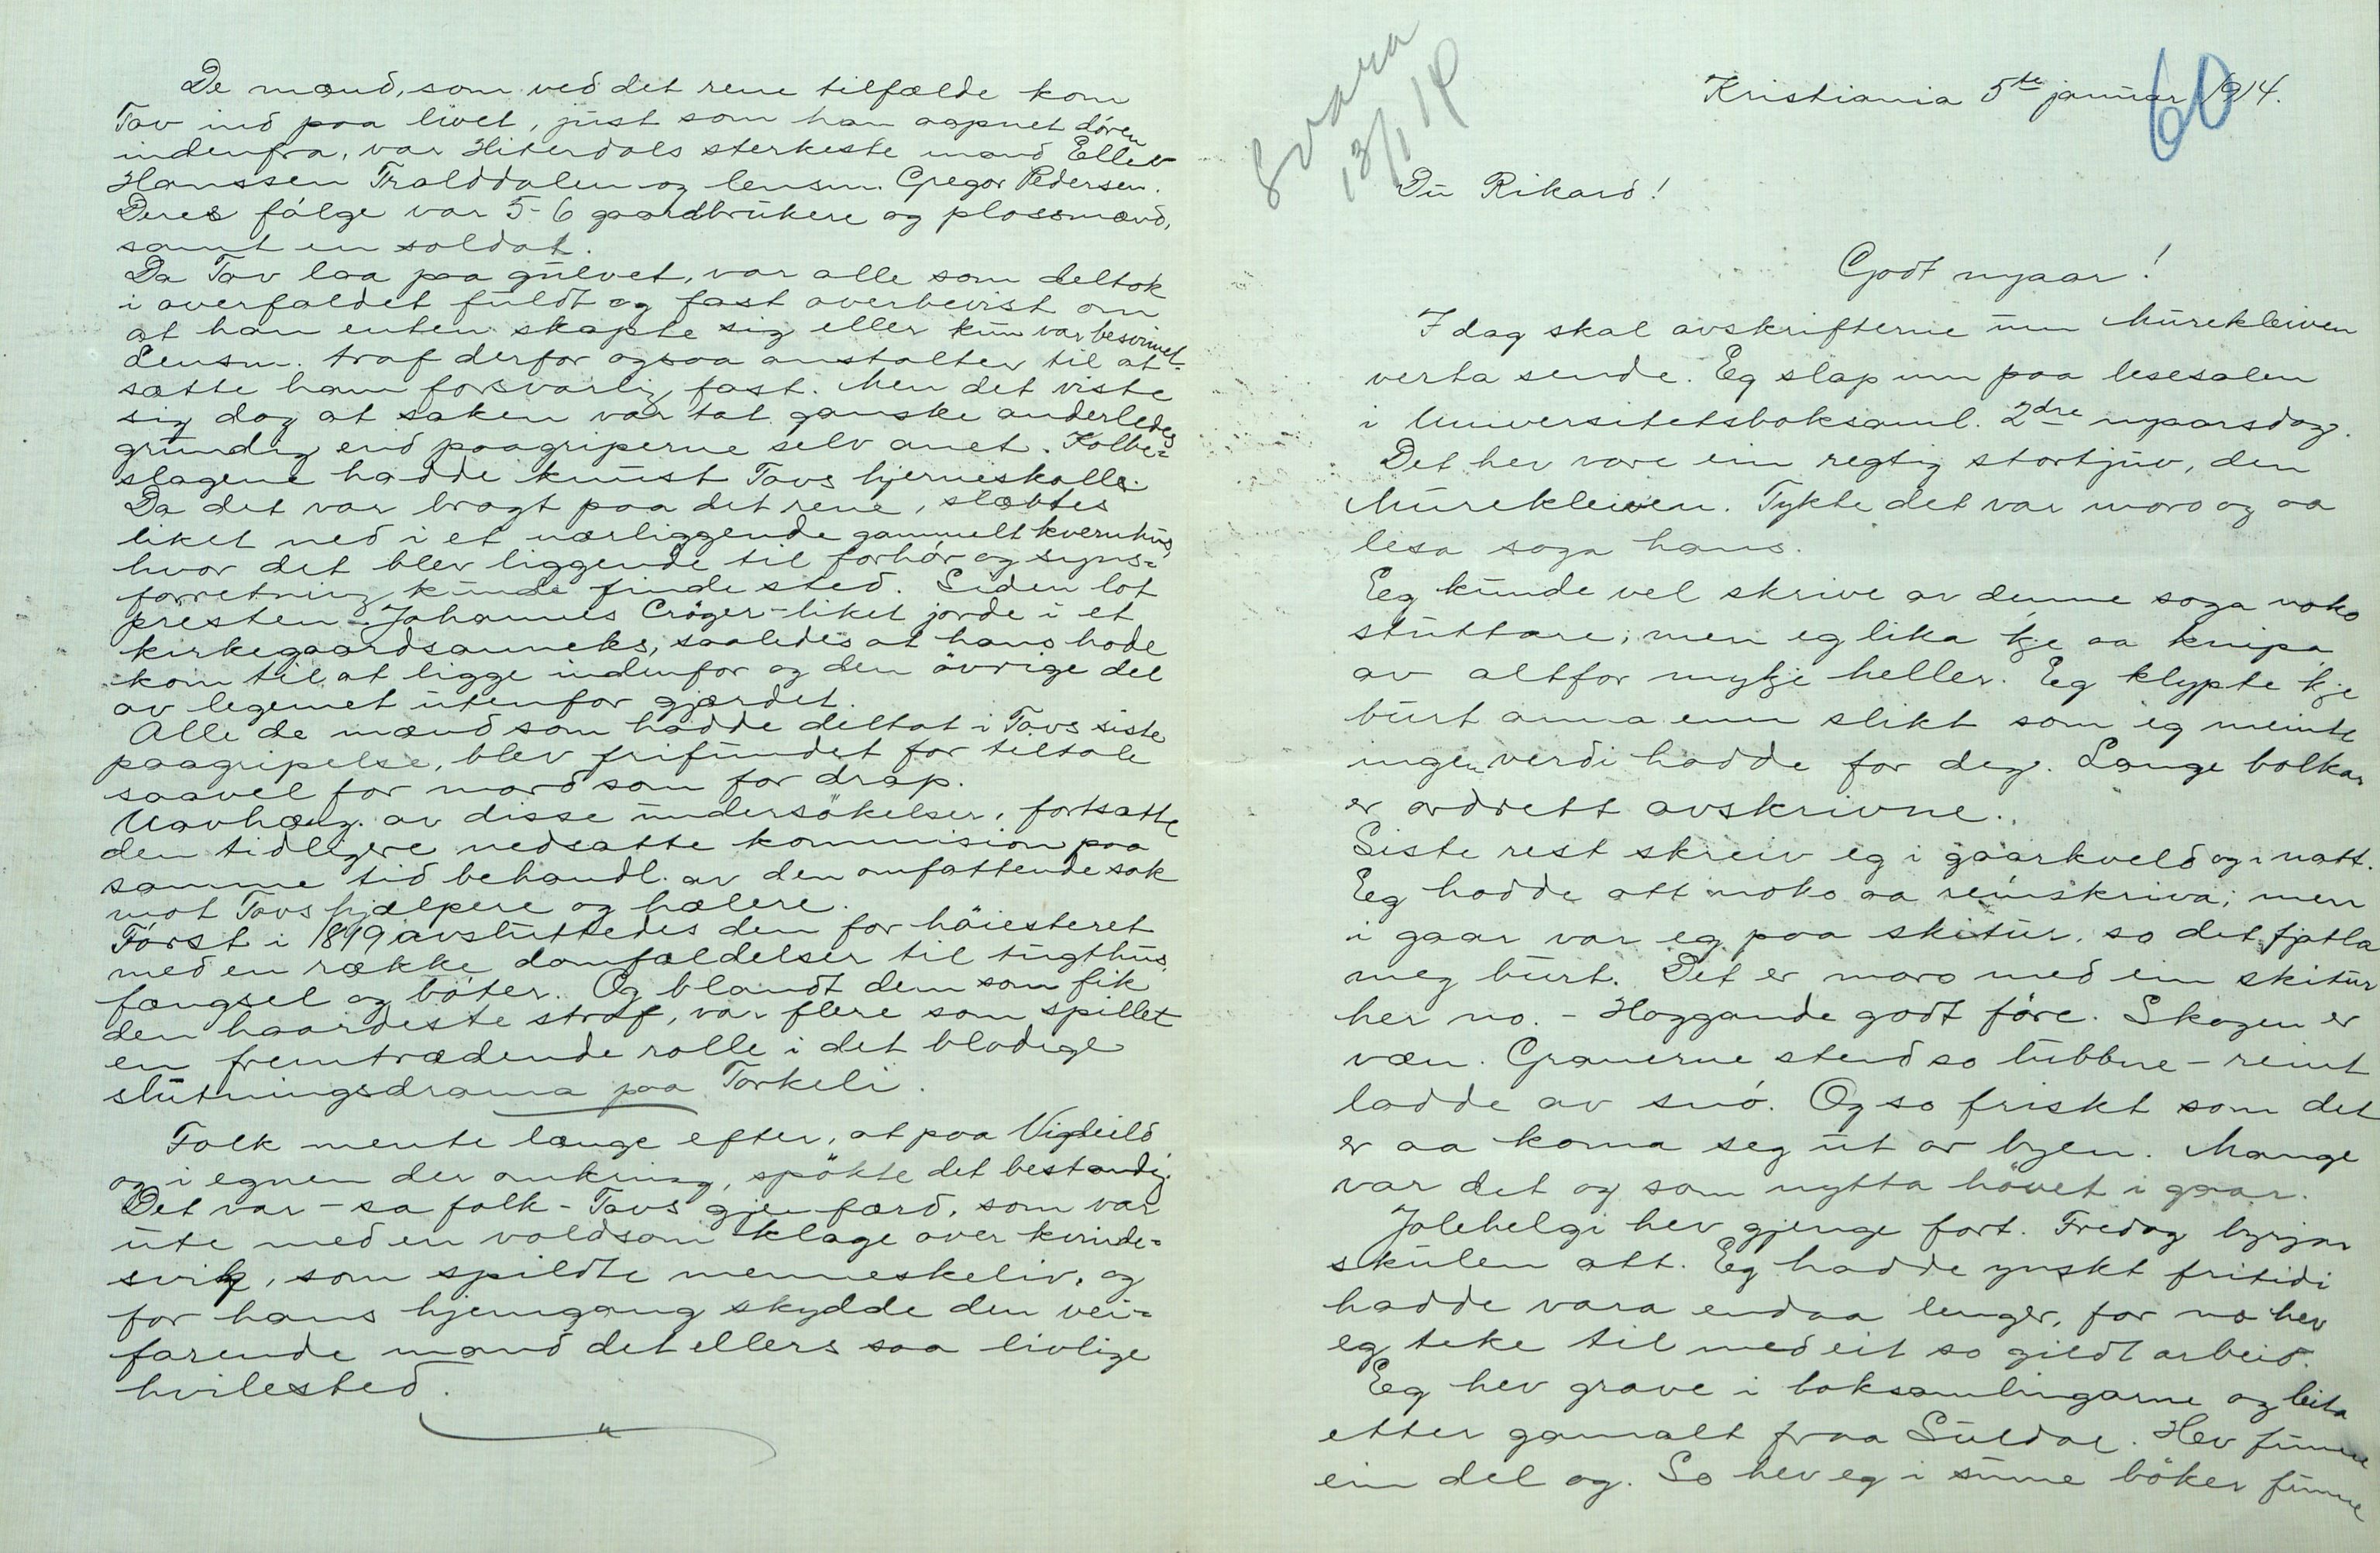 De mænd, som ved det rene tilfælde kom
Tov ind paa livet, just som han aapnet døren
indenfra, var Hiterdals sterkeste mand Ellev
Hanssen Tralddalen og lensm. Gregor Pedersen.
Deres følge var 5-6 gaardbrukere og plassmænd,
samt en soldat.
Da Tov laa paa gulvet, var alle som deltok
i overfaldet fuldt og fast overbevist om
at han enten skapte sig eller kun var besvimet.
Lensm. traf derfor ogsaa anstalter til at
sætte ham forsvarlig fast. Men det viste
sig dog at saken var tat ganske anderledes
grundig end paagriperne selv anet. Kolbe=
slagene hadde knust Tovs hjerneskalle.
Da det var bragt paa det rene, slæbtes
liket ned i et nærliggende gammelt kvernhus,
hvor det blev liggende til forhør og syns=
forretning kunde finde sted. Siden lot
presten - Johannes Crøger - liket jorde i et
kirkegaardsanneks, saaledes at hans hode
kom til at ligge indenfor og den øvrige del
av legemet utenfor gjærdet.
Alle de mænd som hadde deltat i Tovs siste
paagripelse, blev frifundet for tiltale
saavel for mord som for drap.
Uavhæng. av disse undersøkelser, fortsatte
den tidligere nedsatte kommision paa
samme tid behandl. av den omfattende sak
mot Tovs hjælpere og hælere.
Først i 1819 avsluttedes den for høiesteret
med en række domfældelser til tugthus,
fængsel og bøter. Og blandt dem som fik
den haardeste straf, var flere som spillet
en fremtrædende rolle i det blodige
slutningsdrama paa Torkeli.
Folk mente længe efter, at paa Vigheild
og i egnen der omkring, spøkte det bestandig.
Det var - sa folk - Tovs gjenfærd, som var
ute med en voldsom klage over kvinde=
svik, som spildte menneskeliv, og
for hans hjemgang skydde den vei=
farende mand det ellers saa livlige
hvilested.
Svara
13/1 14
60
Kristiania 5te januar 1914.
Du Rikard!
Godt nyaar!
I dag skal avskrifterne um Murekleiven
verta sende. Eg slap inn paa lesesalen
i Universitetsboksaml. 2dre nyaarsdag.
Det hev vore ein regtig stortjuv, den
Murekleiven. Tykte det var moro og aa
lesa soga hans.
Eg kunde vel skrive av denne soga noko
stuttare; men eg lika kje aa knipa
av altfor mykje heller. Eg klypte kje
burt anna enn slikt som eg meinte
ingen verdi hadde for deg. Lange bolkar
er ordrett avskrivne.
Siste rest skreiv eg i gaarkveld og i natt.
Eg hadde att noko aa reinskriva; men
i gaar var eg paa skitur, so det fjatla
meg burt. Det er moro med ein skitur
her no. - Hoggande godt føre. Skogen er
væn. Granerne stend so lubbne - reint
ladde av snø. Og so friskt som det
er aa koma seg ut av byen. Mange
var det og som nytta høvet i gaar.
Jolehelgi hev gjenge fort. Fredag byrjar
skulen att. Eg hadde ynskt fritidi
hadde vara endaa lenger, for no hev
eg teke til med eit so gildt arbeid.
Eg hev grave i boksamlingarne og leita
etter gamalt fraa Suldal. Hev funne
ein del og. So hev eg i sume bøker funne